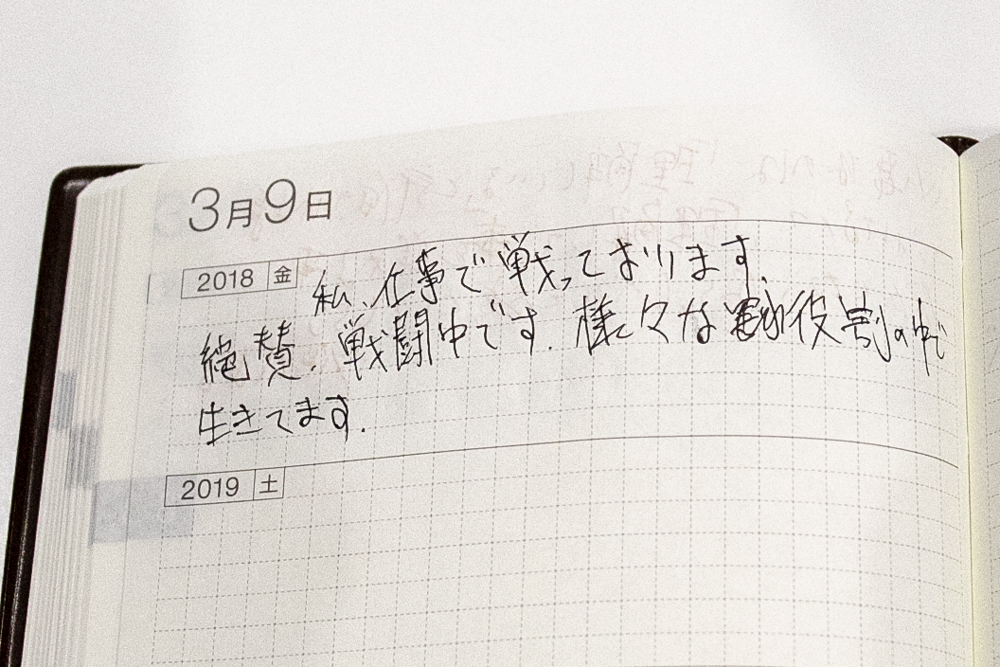 3月9日
2018 金
私、仕事で戦っております。
絶賛、戦闘中です。様々な役割の中で
生きてます。
2019 土